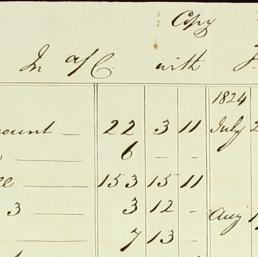 Copy
In a/C. with
1824
ount — 22 3 11 July 2
— 6 - -
153 15 11
3 — 3 12 - Aug 1
— 7 13 -